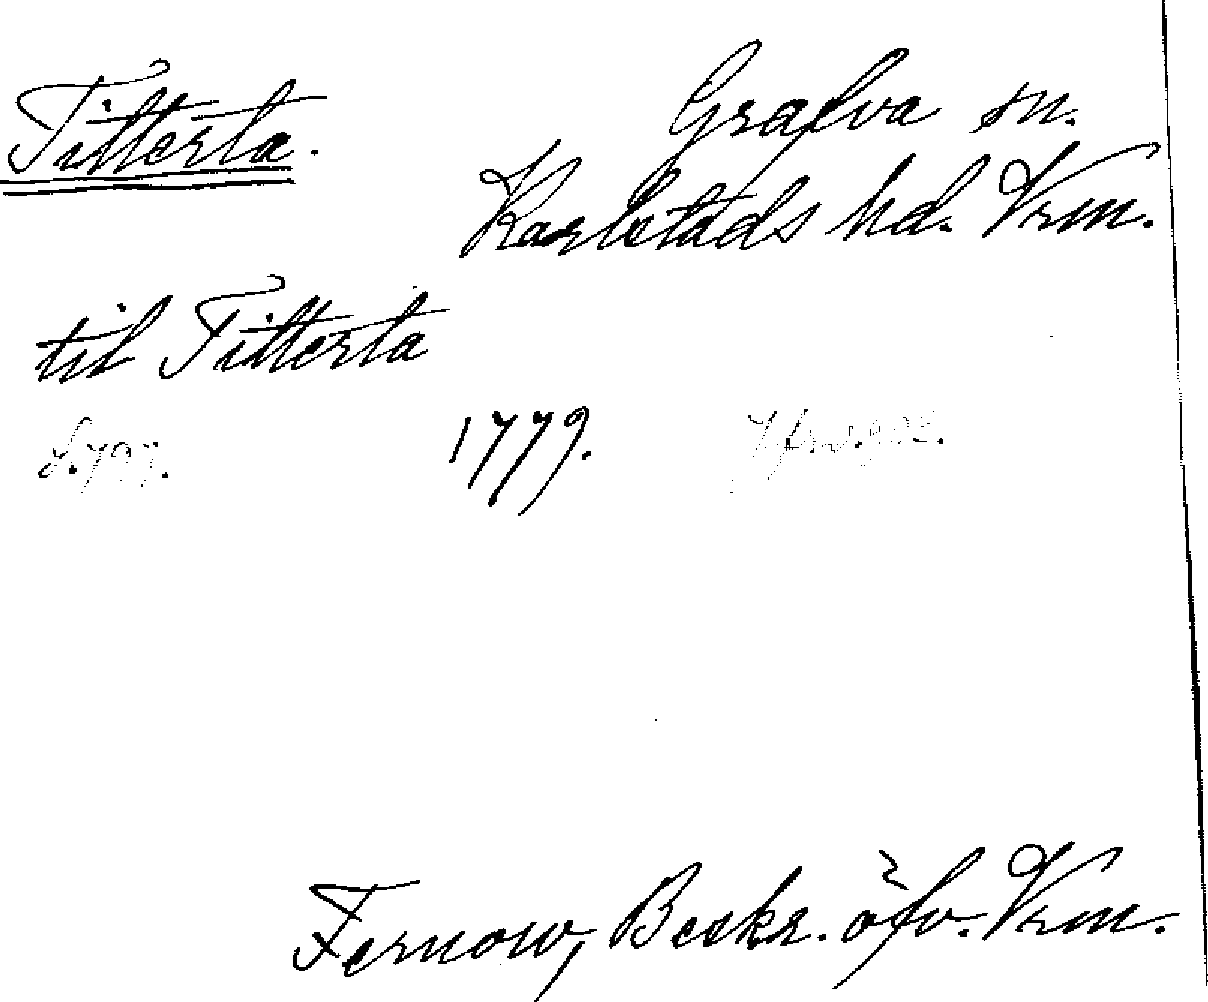 Titterta.
Grafva sn.
Karlstads hd. Vrm.
til Titterta
S. 797. 1779.
Fernow, Beskr. öfv. Vrm.